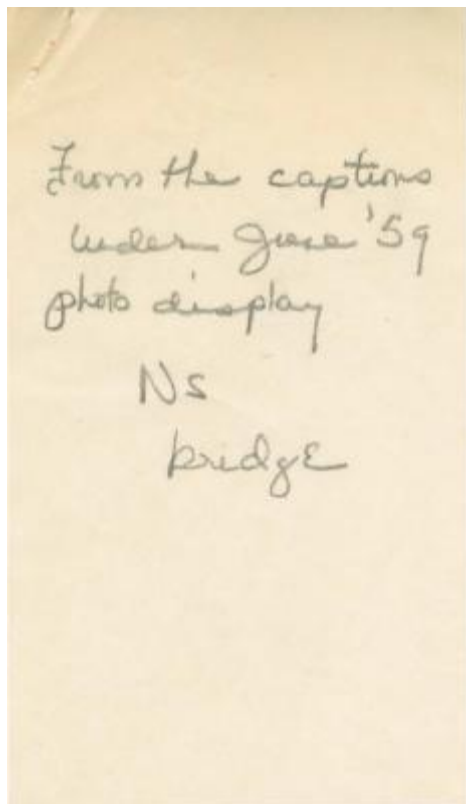 From the captions
under June '59
photo display
Ns
bridge